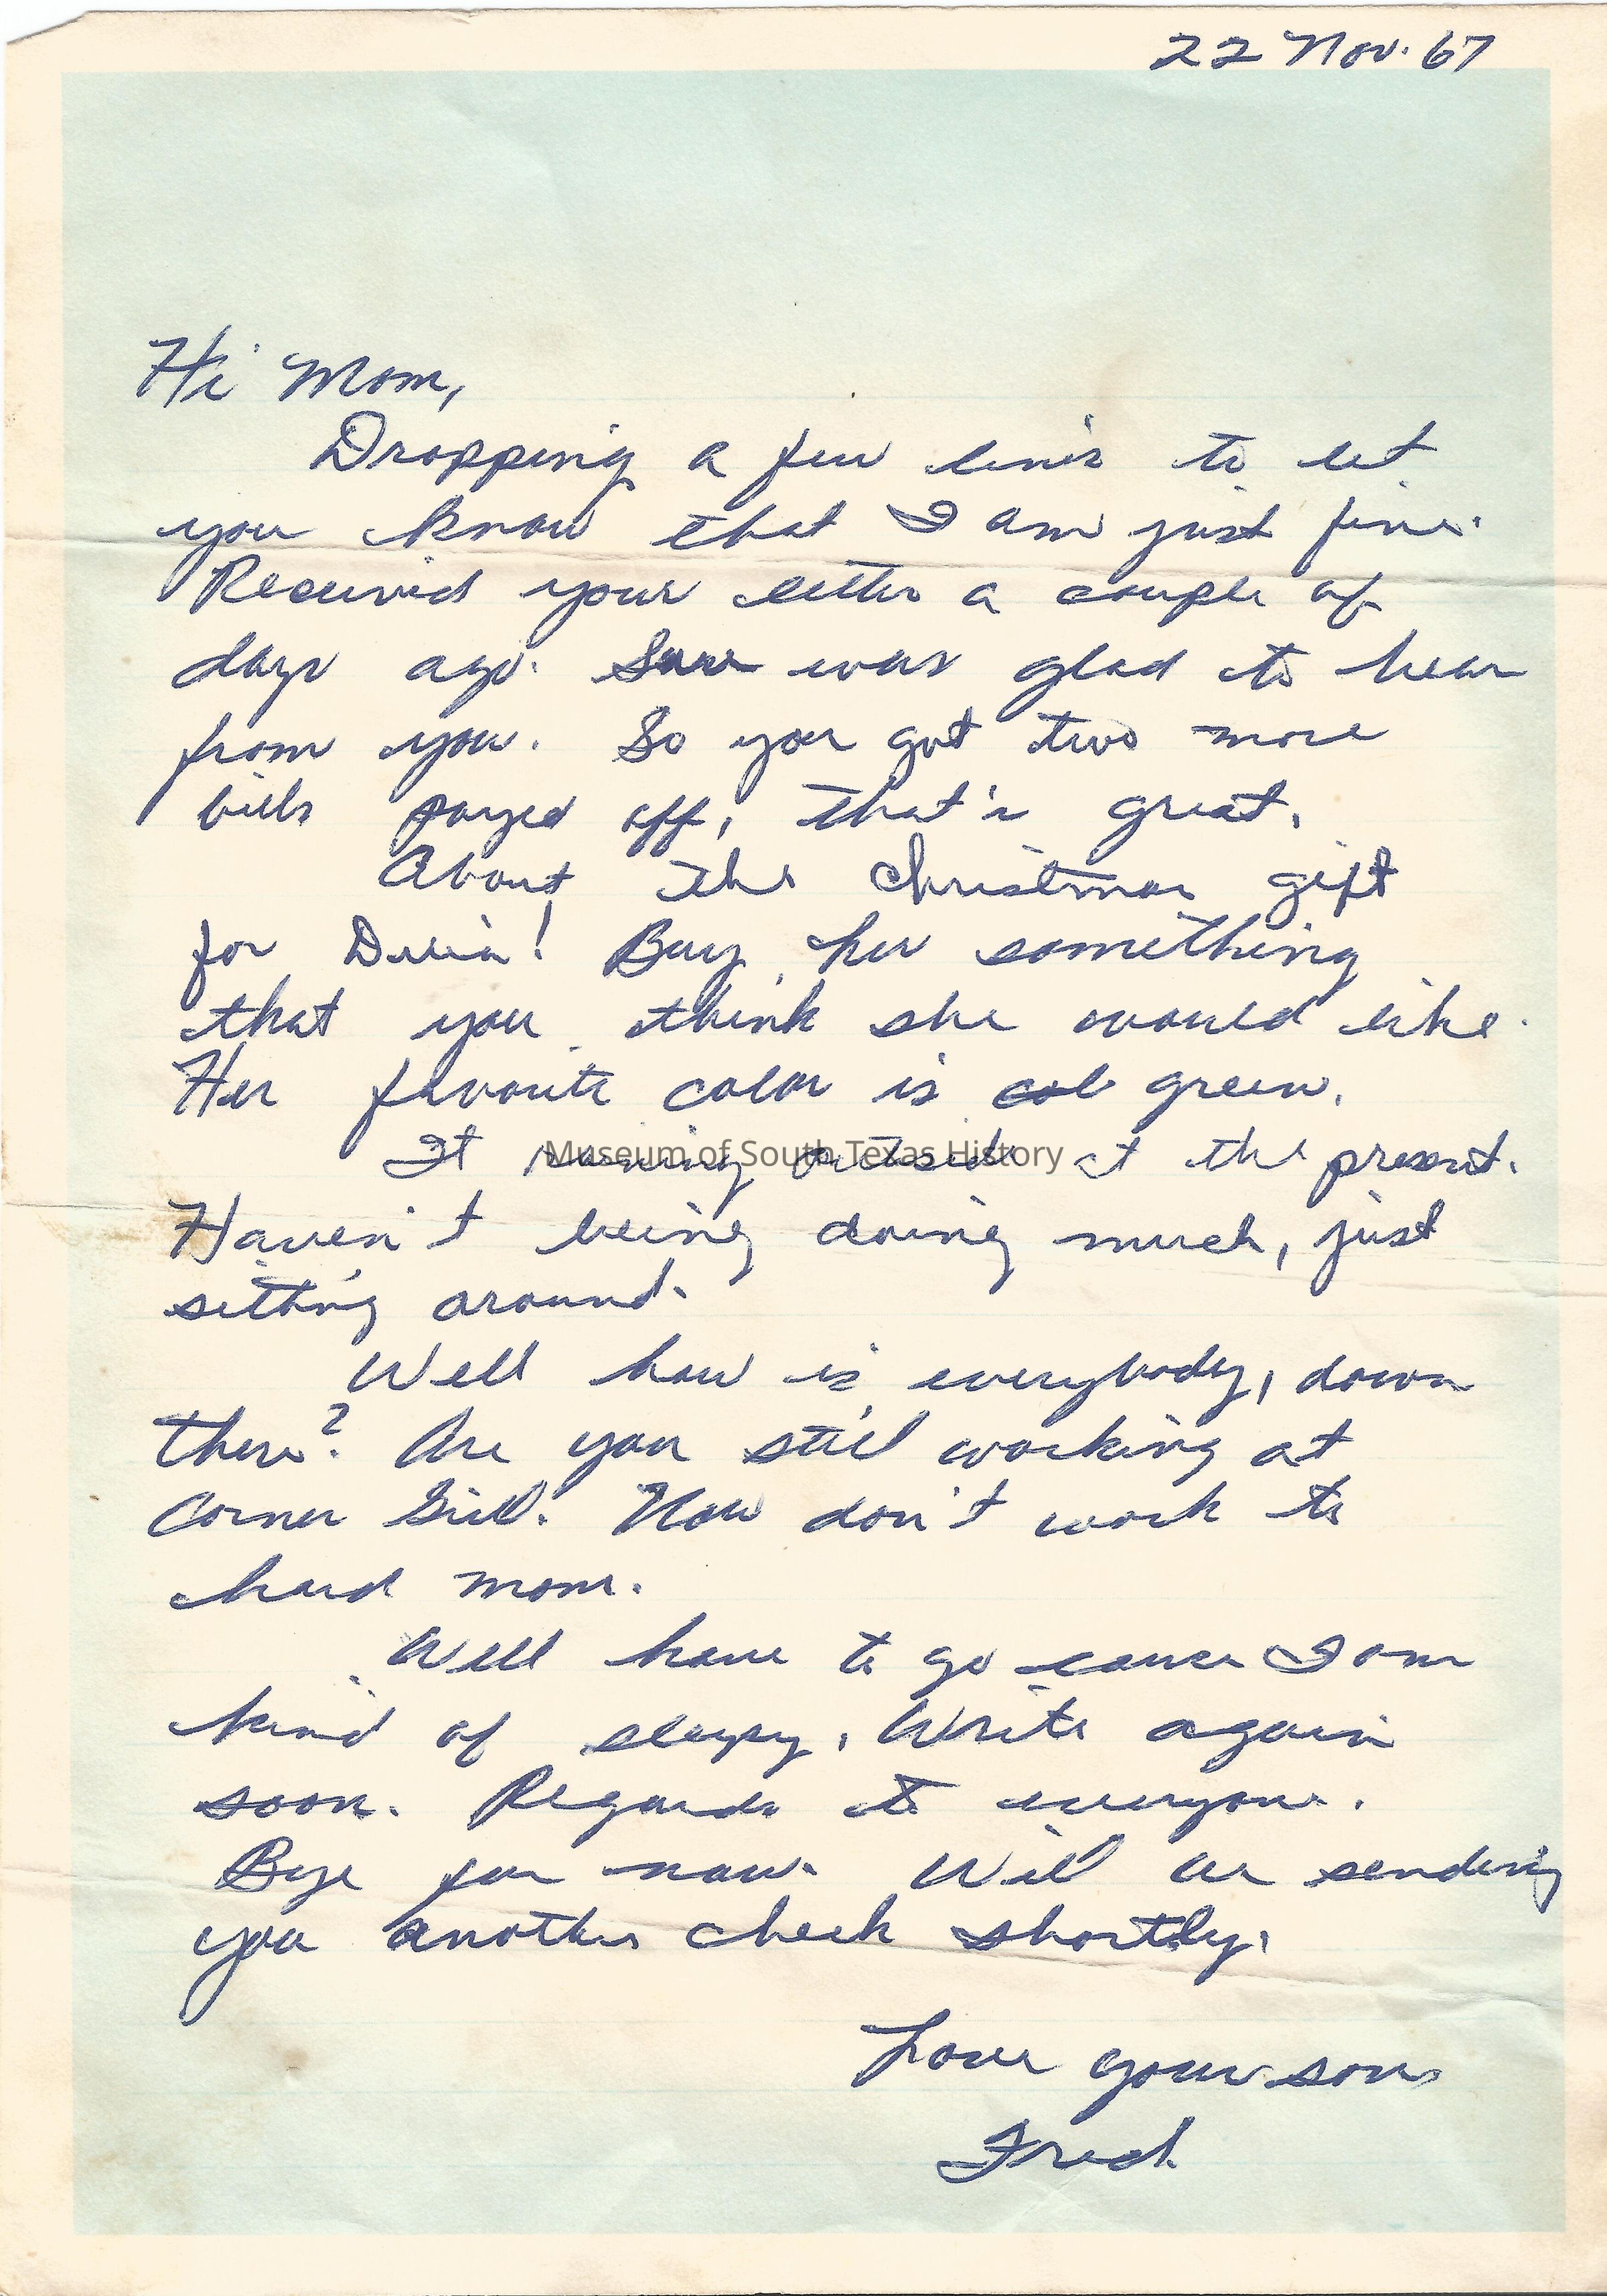 22 Nov. 67
Hi Mom,
Dropping a few lines to let
you know that I am just fine.
Received your letter a couple of
days ago. Sure was glad to hear
from you. So you got two more
bills payed off, that's great.
About the Christmas gift
for Delia! Buy her something
that you think she would like.
Her favorite color is col green.
It raining outside at the present.
Museum of South Texas History
Haven't being doing much, just
sitting around.
Well how is everybody, down
there? Are you still working at
Corner Grill. Now don't work to
hard mom.
Well have to go cause I am
kind of sleepy. Write again
soon. Regards to everyone.
Bye for now. Will be sending
you another check shortly.
Love your son
Fred.